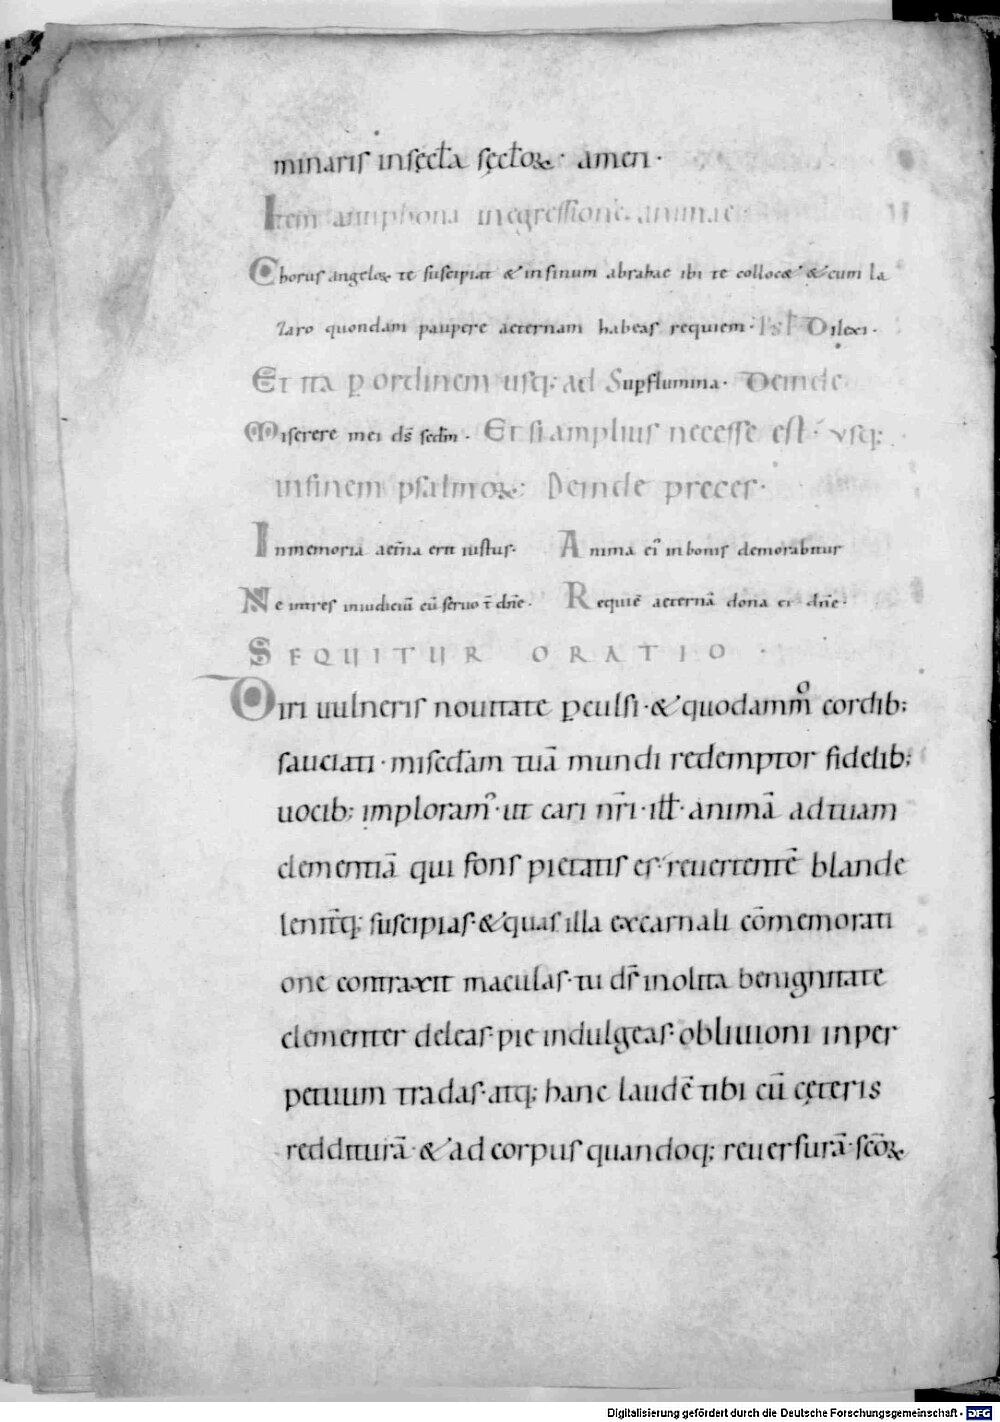 minaris insecta sęctoꝝ · amen ·
Item antiphona inegressione animae
Chorus angeloꝝ te suscipiat & insinum abrahae ibi te collocet & cum la
zaro quondam paupere aeternam habeas requiem · Psł Dilexi ·
Et ita ꝑ ordinem usq; ad Suꝑflumina · Deinde
Miserere mei ds̄ secdm̄ · Et si amplius necesse est · vsq;
infinem psalmoꝝ: Deinde preces ·
Inmemoria aet̄na erit iustus · Anima ei᾿ inbonis demorabitur
Ne intres iniudiciū cū seruo t̄ dn̄e · Requiē aeternā dona ei dn̄e ·
SEQUITUR ORATIO ·
Diri uulneris nouitate ꝑculsi · & quodammͦ cordib;
sauciati · misecd̄iam tuā mundi redemptor fidelib;
uocib; imploram᾿ · ut cari nr̄i · iƚƚ · animā adtuam
clementiā qui fons pietatis es · reuertentē blande
lenit̄q; suscipias · & quas illa excarnali cōmemorati
one contraxit maculas · tu ds̄ inolita benignitate
clementer deleas · pie indulgeas · obliuioni inper
petuum tradas · atq; hanc laudē tibi cū cęteris
redditurā · & ad corpus quandoq; reuersurā · scōꝝ
Digitalisierung gefördert durch die Deutsche Forschungsgemeinschaft - DFG